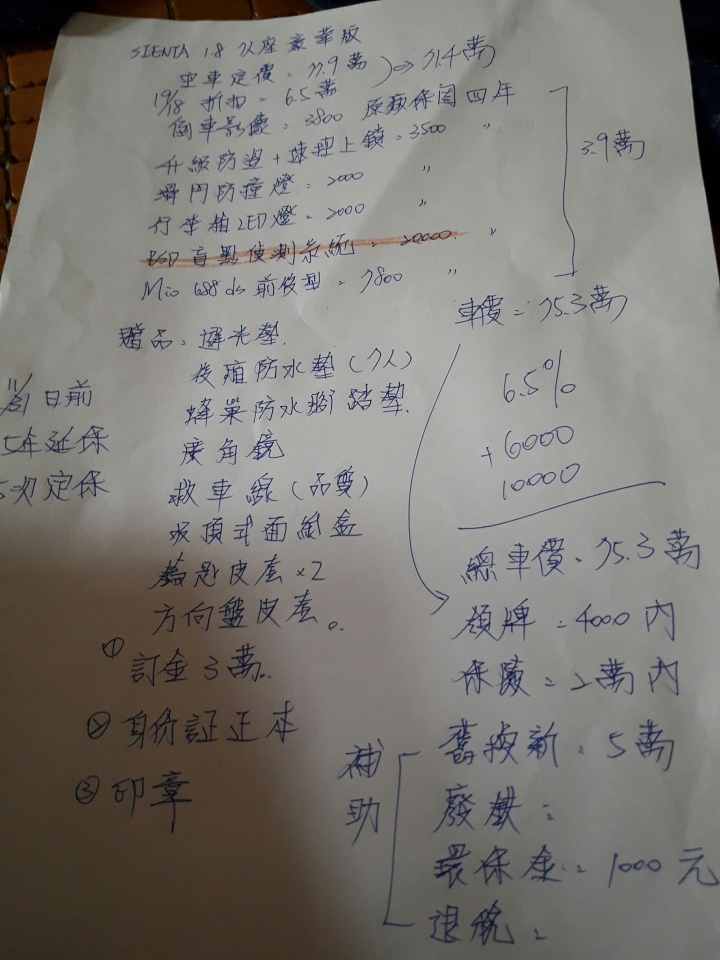 SIENTA 1.8 7人座豪華版
空車定價=77.9萬 ⇒ 71.4萬
19/18 折扣=6.5萬
倒車影像=3800 原廠保固四年
升級防盜+速控上鎖=3500 〃
滑門防撞燈=2000 〃
行李箱LED燈=2000 〃
BSD盲點偵測系統=20000 〃
Mio 688 ds 前後型=7800 〃
3.9萬
車價=75.3萬
6.5%
+6000
10000
總車價=75.3萬
領牌=4000內
保險=2萬內
補助
舊換新=5萬
廢鐵=
環保金=1000元
退稅=
贈品=遮光墊.
後箱防水墊(7人)
蜂巢防水腳踏墊.
廣角鏡
救車線(品質)
吸頂式面紙盒
鑰匙皮套×2
方向盤皮套。
日前
5年延保
5次定保
① 訂金3萬.
② 身份証正本
③ 印章